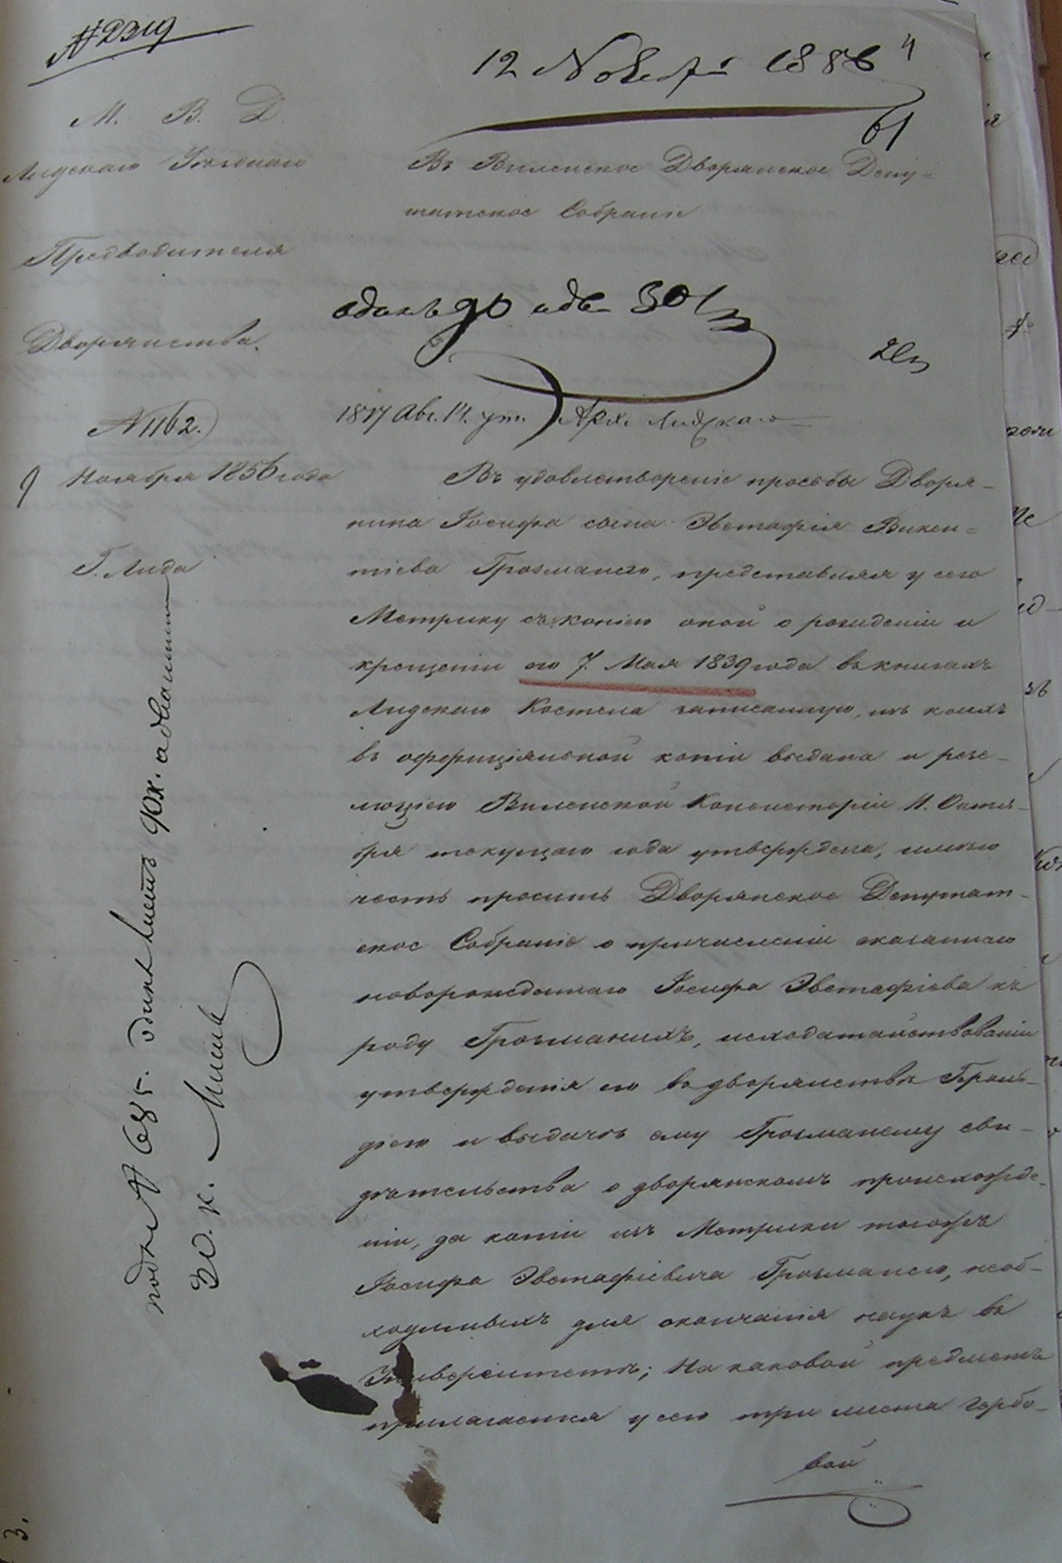 № 2319
12 Ноября 1856
4
61
М. В. Д.
Лидскаго Уѣзднаго
Предводителя
Дворянства.
№ 1162.
Ноября 1856 года
Г. Лида
Въ Виленское Дворянское Депу-
татское Собраніе
1857 Авг. 14. Арх. Лидскаго
Въ удовлетвореніе просьбы Дворя-
нина Іосифа сына Эвстафія Викен-
тіева представляя у сего
Метрику съ копіею оной о рожденіи и
крещеніи его 7. Мая 1839 года въ книгахъ
Лидскаго Костела записанную, изъ коихъ
въ оффиціяльной копіи выдана и резо-
люціею Виленской Консисторіи 11. Октя-
бря текущаго года утверждена, имѣю
честь просить Дворянское Депутат-
ское Собраніе о причисленіи сказаннаго
новорожденнаго Іосифа Эвстафіева къ
роду исходатайствованіи
утвержденія его въ дворянствѣ Герольд-
діею и выдачѣ ему сви-
дѣтельства о дворянскомъ происхожде-
ніи, да копіи изъ Метрики тогожъ
Іосифа Эвстафіевича необ-
ходимыхъ для окончанія наукъ въ
Университетѣ; На каковой предметъ
прилагается у сего три листа гербо-
вой
подъ № 685.
3.